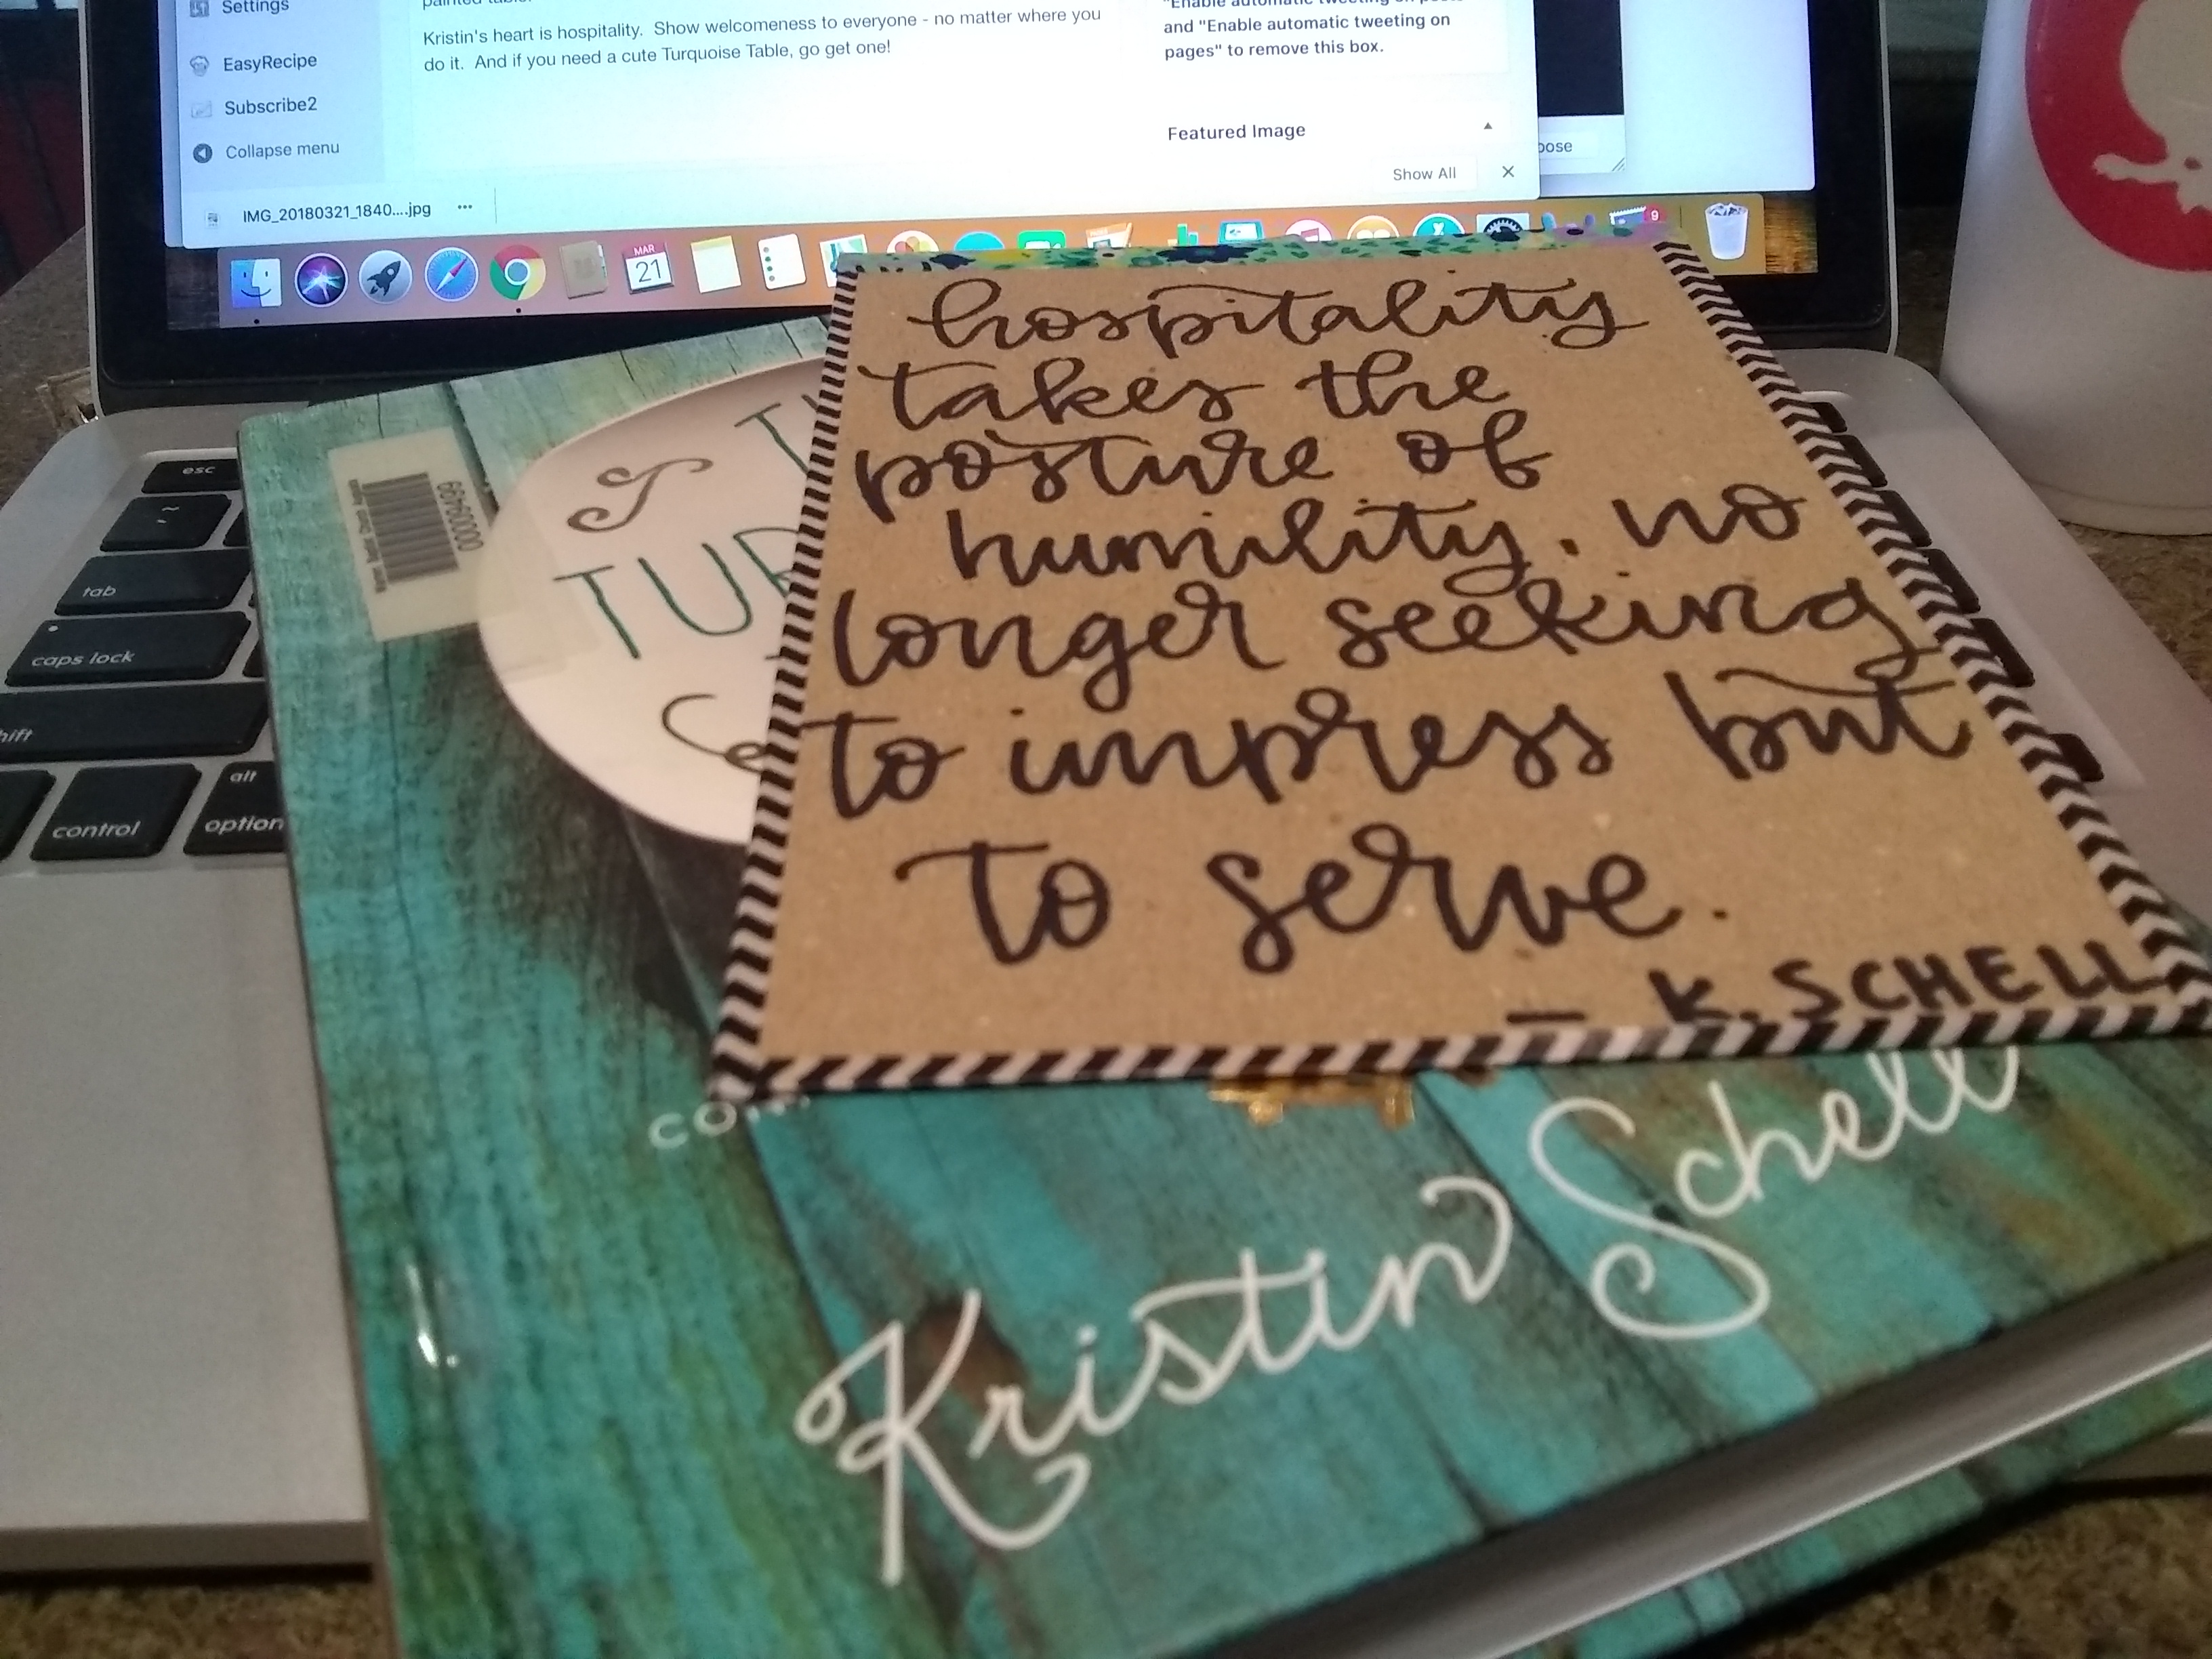 Settings
EasyRecipe
Subscribe2
Collapse menu
Kristin's heart is hospitality. Show welcomeness to everyone - no matter where you
do it. And if you need a cute Turquoise Table, go get one!
"Enable automatic tweeting on
and "Enable automatic tweeting on
pages" to remove this box.
Featured Image
Show All
IMG_20180321_1840....jpg
MAR
21
9
esc
~
tab
caps lock
control
alt
option
00000499
hospitality
takes the
posture of
humility. no
longer seeking
to impress but
to serve.
— K. SCHELL
TUR
Kristin Schell